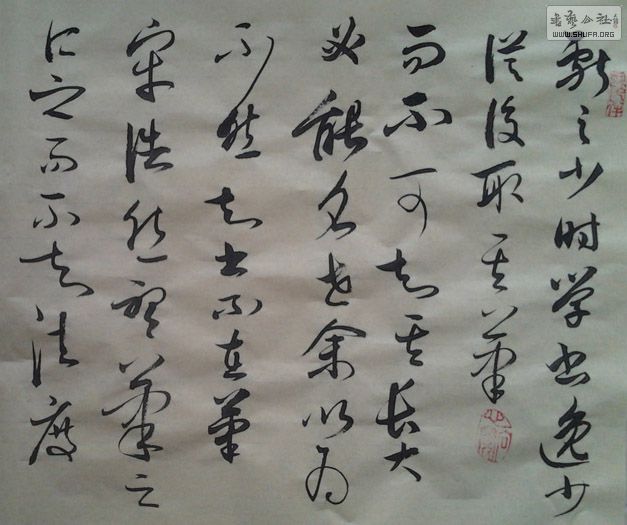 书艺公社
WWW.SHUFA.ORG
献之少时学书逸少
從後取其筆
而不可知其長大
必能名世余以為
不然知书不在筆
牢浩然聽筆之
所之而不失法度